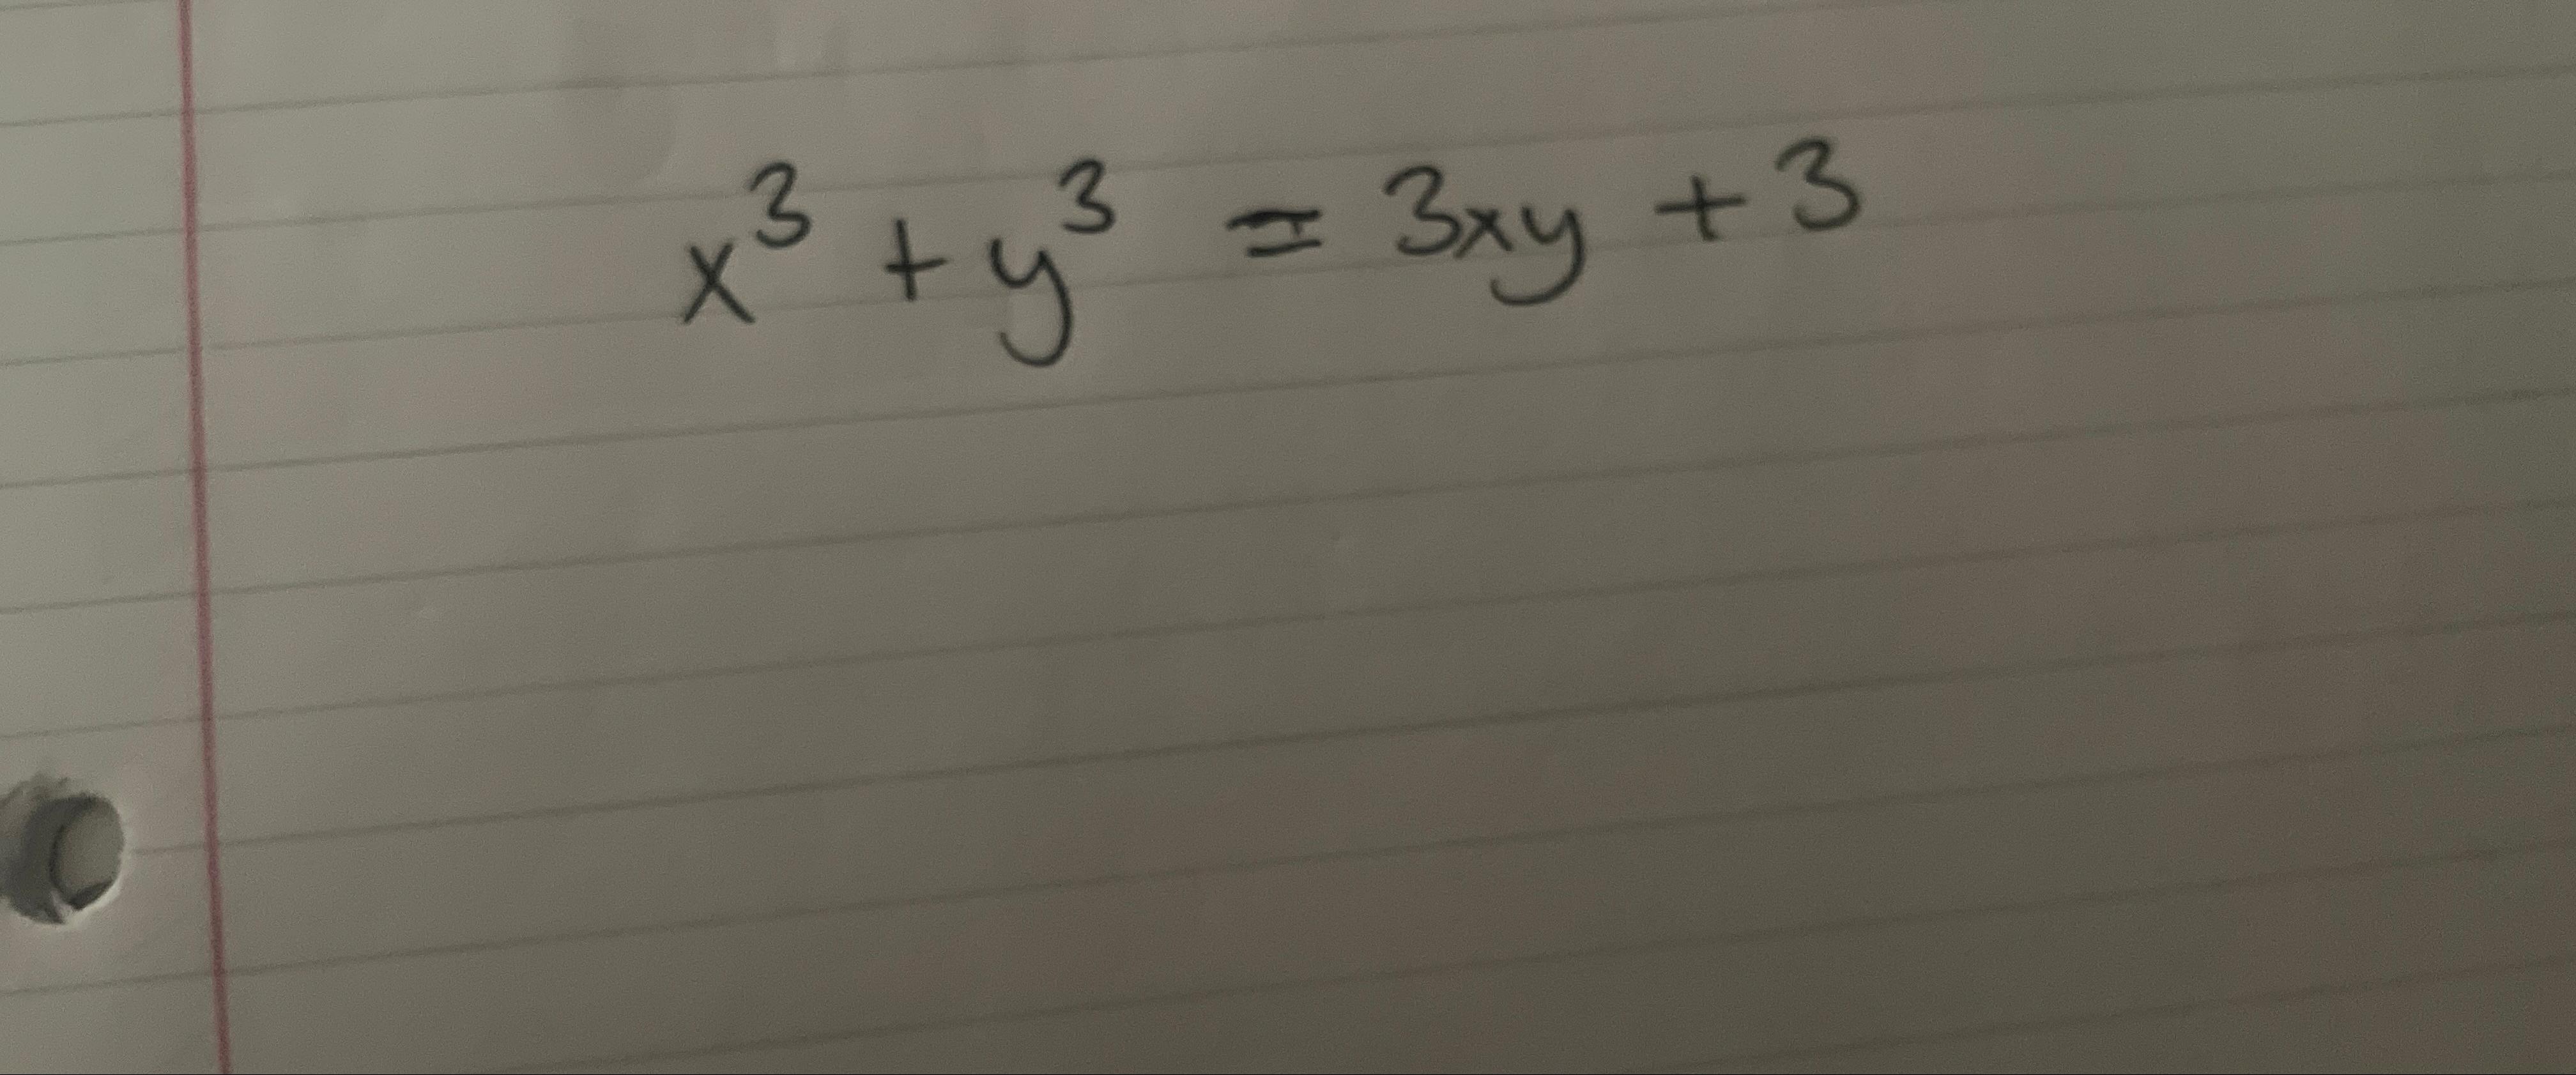 x³ + y³ = 3xy + 3